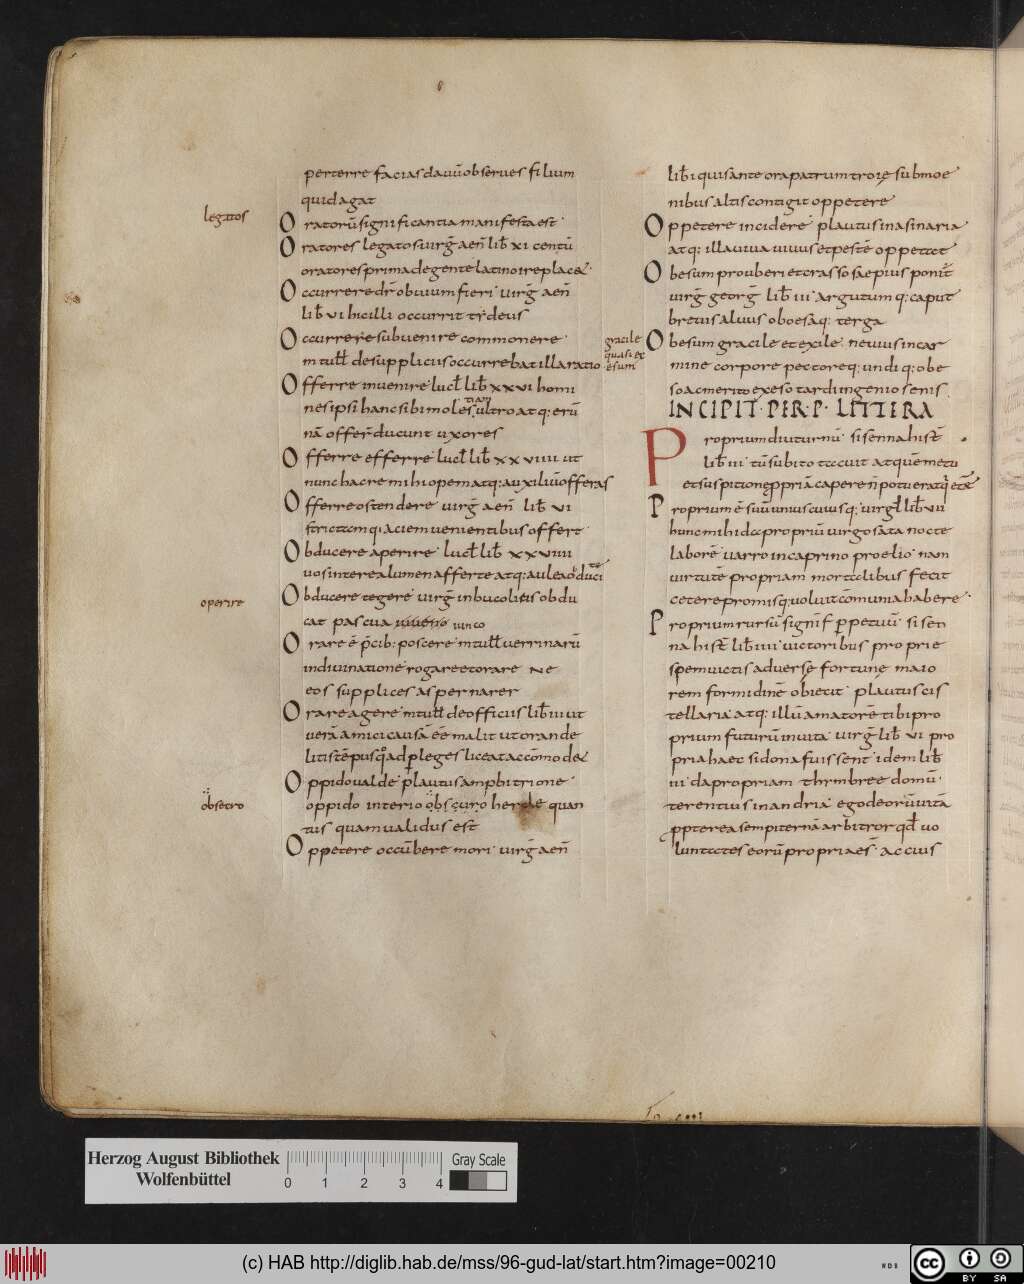 perterre facias davū observes filium
quid agat
legatos
Oratorū significantia manifesta est
Oratores legatos virḡ aen̄ lib̄ xi centū
oratores prima de gente latinoi replacę
Occurrere dr̄ obvium fieri virḡ aen̄
lib̄ vi hic illi occurrit tr̄deus
Occurrere subvenire commonere
m tull̄ de supplicus occurrebat illa ratio
Offerre invenire lucl̄ lib̄ xxvi homi
nes ipsi hanc sibi molestiam ultro atq: erū
nā offer̄ ducunt uxores
Offerre efferre lucl̄ lib̄ xxviiii ut
nunc hac re mihi opem atq: auxiliū offeras
Offerre ostendere virḡ aen̄ lib̄ vi
strictam q: aciem venientibus offert
Obducere aperire lucl̄ lib̄ xxviiii
vos interea lumen afferte atq: aulea obducite
operire
Obducere tegere virḡ in bucolicis obdu
cat pascua iunco
Orare ē p̄cib: poscere m tull̄ verrinarū
in divinatione rogare et orare ne
eos supplices aspernarer
Orare agere m tull̄ de officiis lib̄ iii ut
verā amici causā eē malit ut orande
litis tēpus quoad per leges liceat accōmodę
Oppido valde plautus amphitrione
obsecro
oppido interio obscuro hercle quan
tus quam validus est
Oppetere occūbere mori virḡ aen̄
lib̄ i quis ante ora patrum troię sub moe
nibus altis contigit oppetere
Oppetere incidere plautus in asinaria
atq: illa viva vivus et pestē oppetet
Obesum pro uberi et crasso saepius ponit̄
virḡ georḡ lib̄ iii argutum q: caput
brevis alvus oboesaq: terga
gracile
quasi ex
esum
Obesum gracile et exile nevius in car
mine corpore pectoreq: undi q: obe
so ac mente exeso tardingenio senis
INCIPIT PER P LITTERA
Proprium diuturnū sisenna hist̄
lib̄ iii tū subito tacuit atquē metu
et suspitione ppriā capere n̄ poterat q̄ etā
Proprium ē suū unius cuiusq: virgl̄ lib̄ vii
hunc mihi da propriū virgo sata nocte
laborē varro in caprino proelio nam
virtutē propriam mortalibus fecit
cetere promisq: voluit cōmunia habere
Proprium rursū signif̄ ꝑpetuū sisen
na hist̄ lib̄ iiii victoribus proprie
spem victis adverse fortunę maio
rem formidinē obiecit plautus cis
tellaria atq: illū amatorē tibi pro
prium futurū in vita virḡ lib̄ vi pro
pria haec si dona fuissent idem lib̄
iii da propriam thymbree domū
terentius in andria ego deorū vitā
ppterea sempiternā arbitror qd̄ vo
luntates eorū propriae s̄ accius
Herzog August Bibliothek
Wolfenbüttel
0 1 2 3 4
Gray Scale
(c) HAB http://diglib.hab.de/mss/96-gud-lat/start.htm?image=00210
WDB
cc BY SA